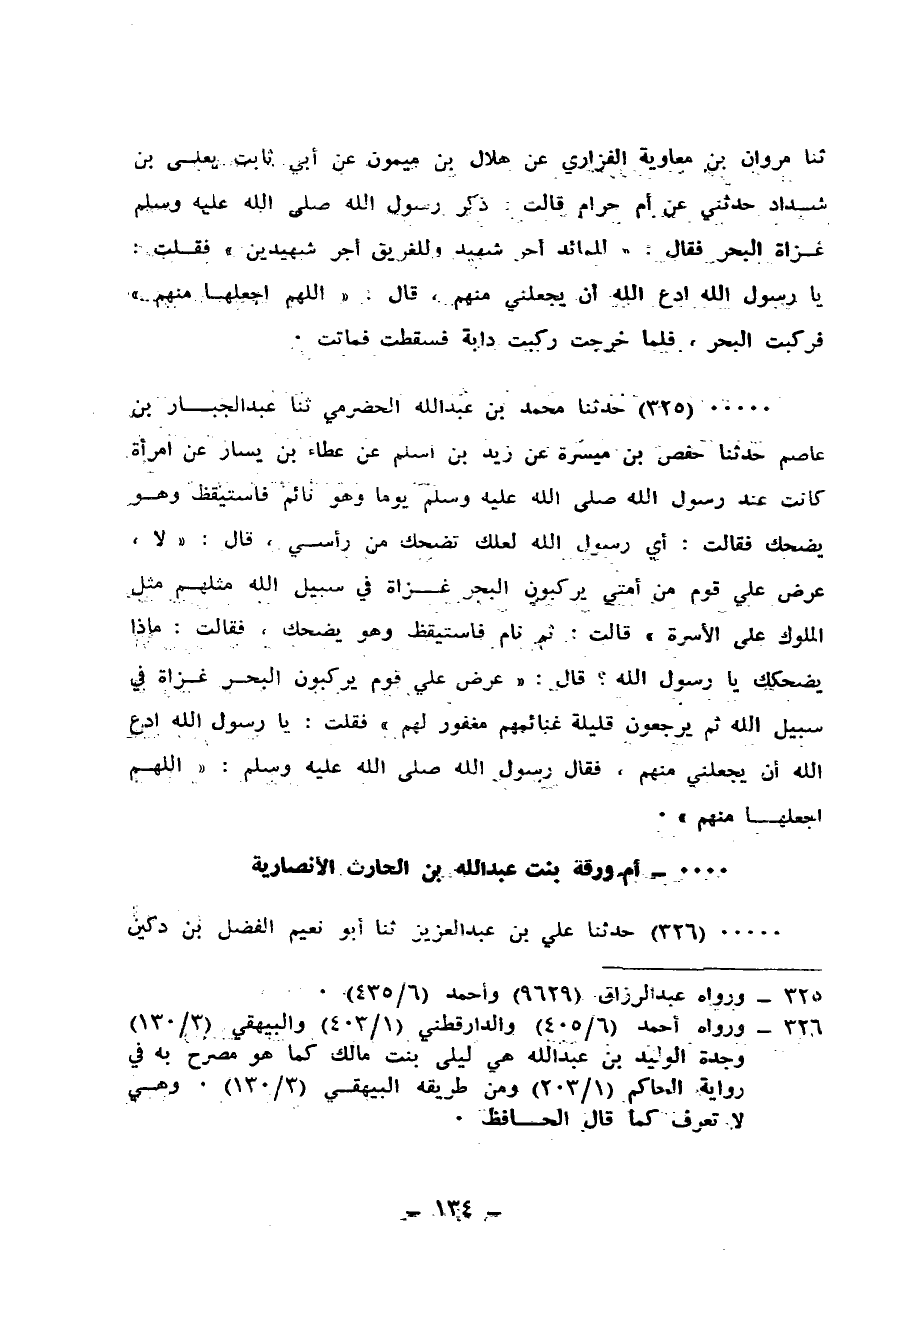 ثنا مروان بن معاوية الفزاري عن هلال بن ميمون عن أبي ثابت يعلى بن
شداد حدثني عن أم حرام قالت : ذكر رسول الله صلى الله عليه وسلم
غزاة البحر فقال : « للمائد أجر شهيد وللغريق أجر شهيدين » فقلت :
يا رسول الله ادع الله أن يجعلني منهم ، قال : « اللهم اجعلها منهم »
فركبت البحر ، فلما خرجت ركبت دابة فسقطت فماتت ٠
٠٠٠٠٠ (٣٢٥) حدثنا محمد بن عبدالله الحضرمي ثنا عبدالجبار بن
عاصم حدثنا حفص بن ميسرة عن زيد بن أسلم عن عطاء بن يسار عن امرأة
كانت عند رسول الله صلى الله عليه وسلم يوما وهو نائم فاستيقظ وهو
يضحك فقالت : أي رسول الله لعلك تضحك من رأسي ، قال : « لا ،
عرض علي قوم من أمتي يركبون البحر غزاة في سبيل الله مثلهم مثل
الملوك على الأسرة » قالت : ثم نام فاستيقظ وهو يضحك ، فقالت : ماذا
يضحكك يا رسول الله ؟ قال : « عرض علي قوم يركبون البحر غزاة في
سبيل الله ثم يرجعون قليلة غنائمهم مغفور لهم » فقلت : يا رسول الله ادع
الله أن يجعلني منهم ، فقال رسول الله صلى الله عليه وسلم : « اللهم
اجعلها منهم » ٠
٠٠٠٠ ـ أم ورقة بنت عبدالله بن الحارث الأنصارية
٠٠٠٠٠ (٣٢٦) حدثنا علي بن عبدالعزيز ثنا أبو نعيم الفضل بن دكين
٣٢٥ ـ ورواه عبدالرزاق (٩٦٢٩) وأحمد (٤٣٥/٦) ٠
٣٢٦ ـ ورواه أحمد (٤٠٥/٦) والدارقطني (٤٠٣/١) والبيهقي (١٣٠/٣)
وجدة الوليد بن عبدالله هي ليلى بنت مالك كما هو مصرح به في
رواية الحاكم (٢٠٣/١) ومن طريقه البيهقي (١٣٠/٣) ٠ وهي
لا تعرف كما قال الحافظ ٠
ـ ١٣٤ ـ